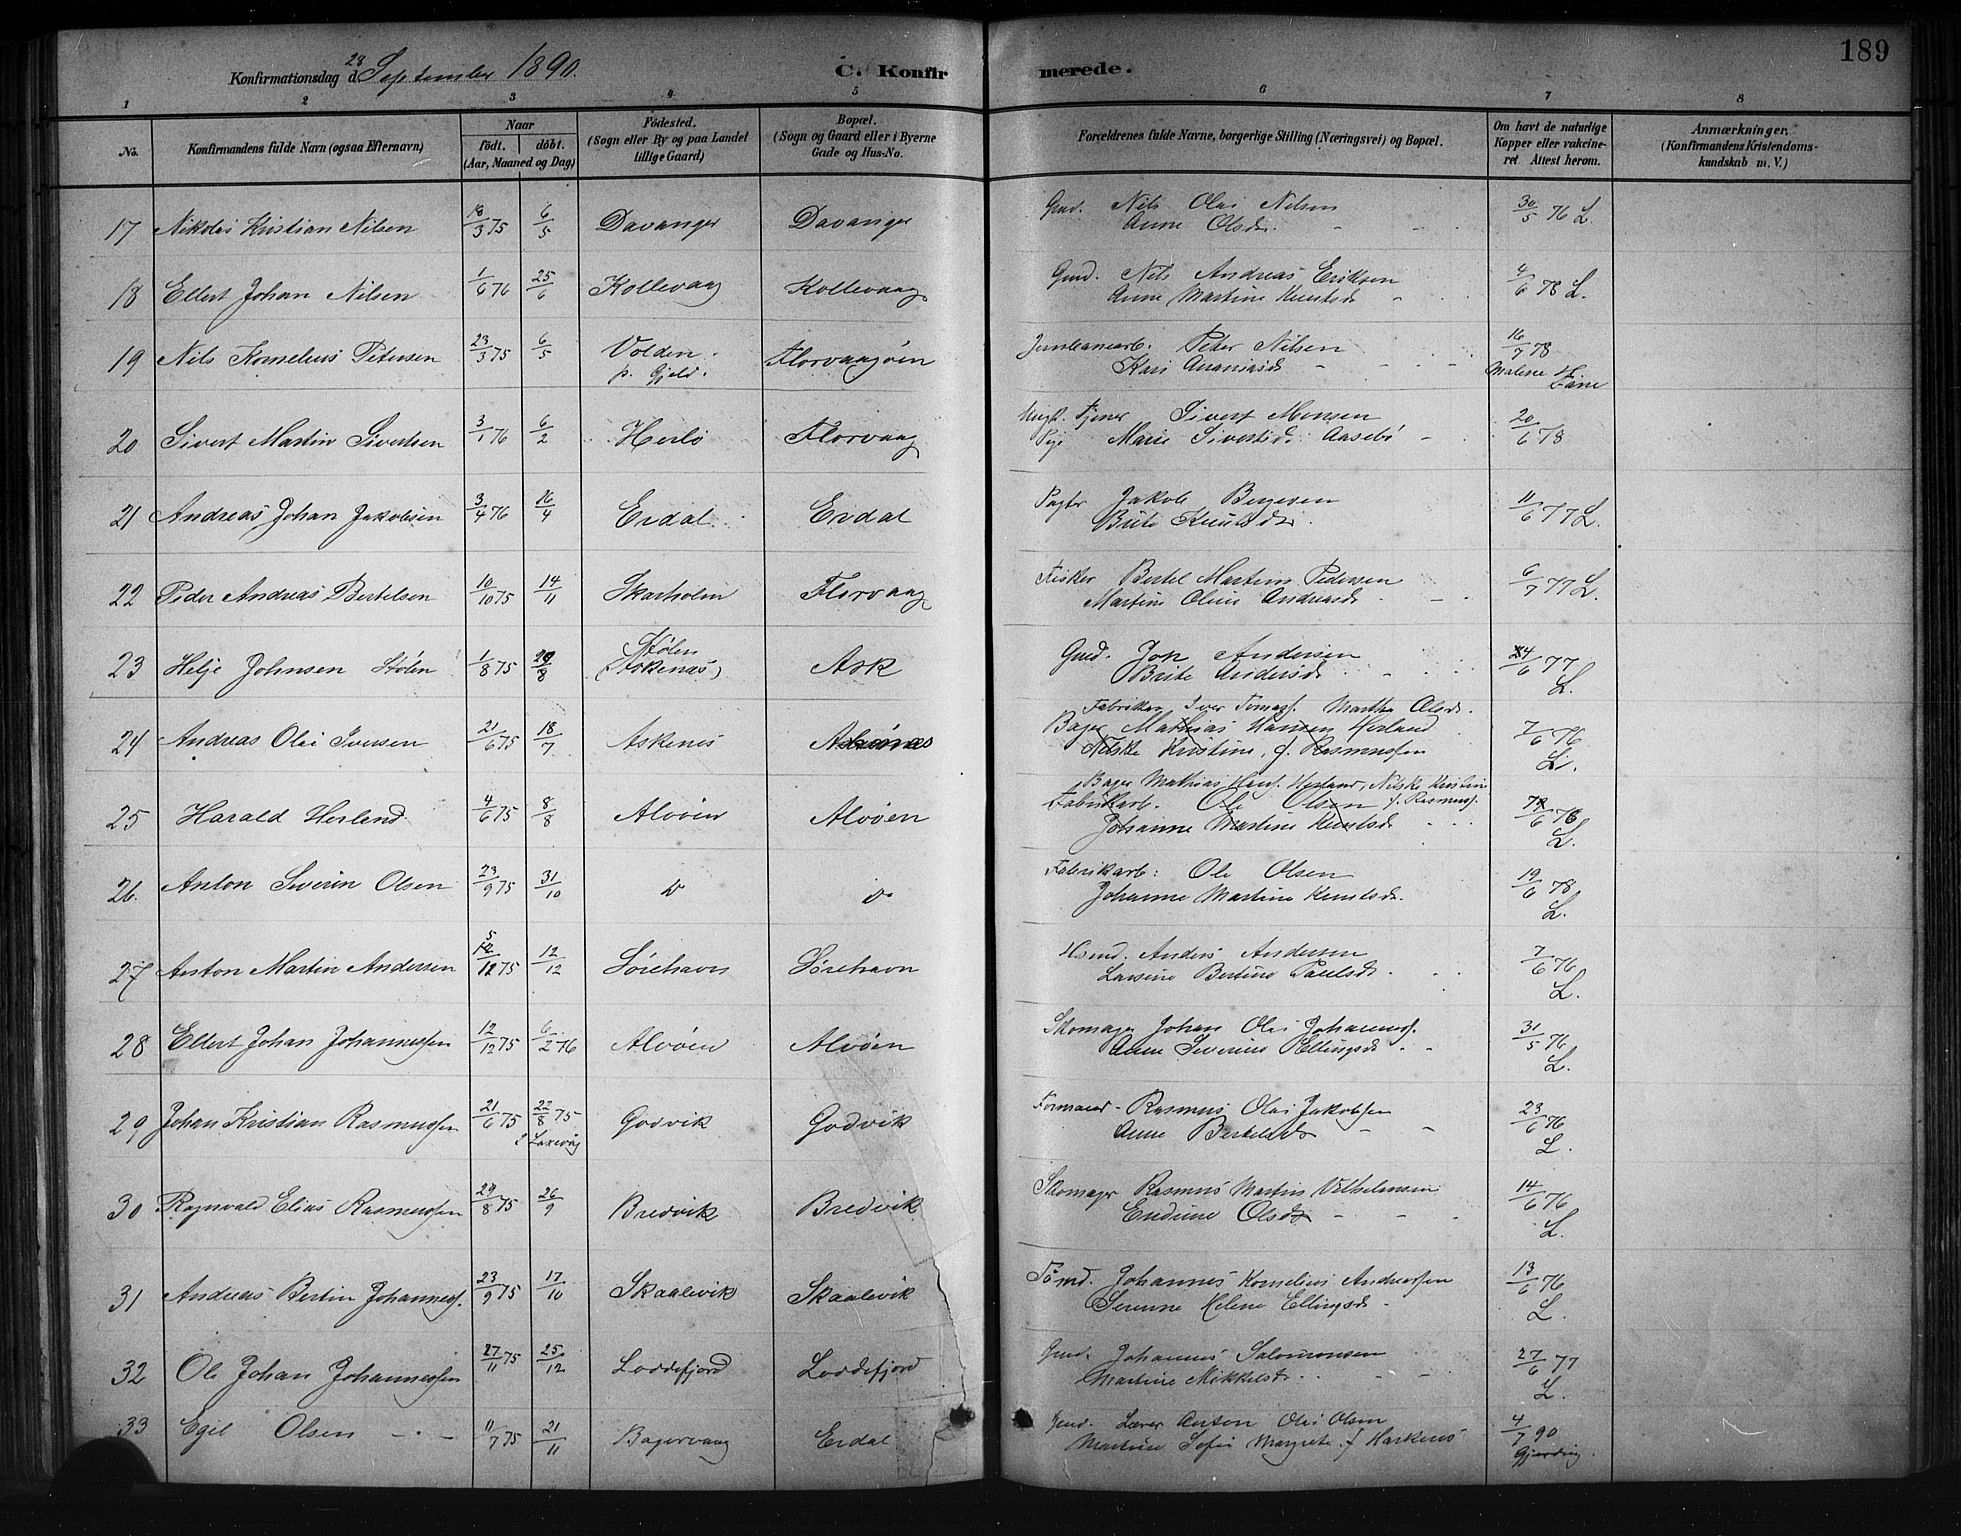 189
Konfirmationsdag d. 28 September 1890.
C. Konfirmerede.
1 2 3 4 5 6 7 8
No.
Konfirmandens fulde Navn (ogsaa Efternavn)
Naar
født. døbt.
(Aar, Maaned og Dag)
Fødested.
(Sogn eller By og paa Landet
tillige Gaard)
Bopæl.
(Sogn og Gaard eller i Byerne
Gade og Hus-No.
Forældrenes fulde Navne, borgerlige Stilling (Næringsvei) og Bopæl.
Om havt de naturlige
Kopper eller vakcine-
ret Attest herom.
Anmærkninger.
(Konfirmandens Kristendoms-
kundskab m. V.)
17 Nikolai Kristian Nilsen 18/3 75 6/5 Davanger Davanger Gmd. Nils Olai Nilsen 30/5 76 L.
Anne Olsdr.
18 Ellert Johan Nilsen 1/6 76 25/6 Kollevaag Kollevaag Gmd. Nils Andreas Eriksen 4/6 78 L.
Anne Martine Knutsdr
19 Nils Kornelius Petersen 23/3 75 6/5 Volden Florvaagøen Jernbanearb. Peder Nilsen 16/7 78
p. Gjeld. Kari Ananiasdr Malene
20 Sivert Martin Sivertsen 3/1 76 6/2 Herlø Florvaag Ungk. Tjener Sivert Monsen 20/6 78
Pige Marie Sivertsdr. Aasebø
21 Andreas Johan Jakobsen 3/4 76 16/4 Erdal Erdal Pagter Jakob Bergeven 11/6 77 L.
Brite Knutsdr.
22 Peder Andreas Bertelsen 10/10 75 14/11 Skarholm Florvaag Fisker Bertel Martinus Pedersen 6/7 77 L.
Martine Oline Andreasdr
23 Helje Johnsen Stølen 1/8 75 29/8 Stølen (Askenæs) Ask Gmd. Jon Andersen 24/6 77
Brite Andersdr. L.
24 Andreas Olai Iversen 21/6 75 18/7 Askenes Askenes Fabrikarb. Iver Tomass. Martha Olsdr. 7/6 76
Bager Mathias Hansen Herland
Nilske Kristine f. Rasmussen L.
25 Harald Herland 4/6 75 8/8 Alvøen Alvøen Bager Mathias Hans. Herland, Nilske Kristine
Fabrikarb. Ole Olsen f. Rasmuss. 7/6 76
Johanne Martine Knutsdr L.
26. Anton Severin Olsen 23/9 75 31/10 do do Fabrikarb: Ole Olsen 19/6 78
Johanne Martine Knutsdr. L.
27 Anton Martin Andersen 5/12 75 12/12 Sørehavn Sørehavn Hsmd. Anders Andersen 7/6 76
Larsine Bertine Paulsdr L.
28 Ellert Johan Johannessen 12/12 75 6/2 76 Alvøen Alvøen Skomager Johan Olai Johanness. 31/5 76
Anne Severine Ellingsdr L.
29 Johan Kristian Rasmussen 21/6 75 22/8 75 Godvik Godvik Formand Rasmus Olai Jakobsen 23/6 76
i Laxevåg Anne Bertelsdr L.
30 Ragnvald Elias Rasmussen 29/8 75 26/9 Bredvik Bredvik Skomager Rasmus Martin Vilhelmsen 14/6 76
Endrine Olsdr L.
31 Andreas Bertin Johanness. 23/9 75 17/10 Skaalevik Skaalevik Tømd. Johannes Kornelius Andreassen 13/6 76
Serenne Helene Ellingsdr L.
32 Ole Johan Johannessen 27/11 75 25/12 Loddefjord Loddefjord Gmd. Johannes Salomonsen 27/6 77
Martine Mikkelsdr L.
33 Egil Olsen 11/7 75 21/11 Bagervaag Erdal Gmd. Lærer Anton Olai Olsen 4/7 90
Martine Sofie Margrete f Harkenes Gjerding